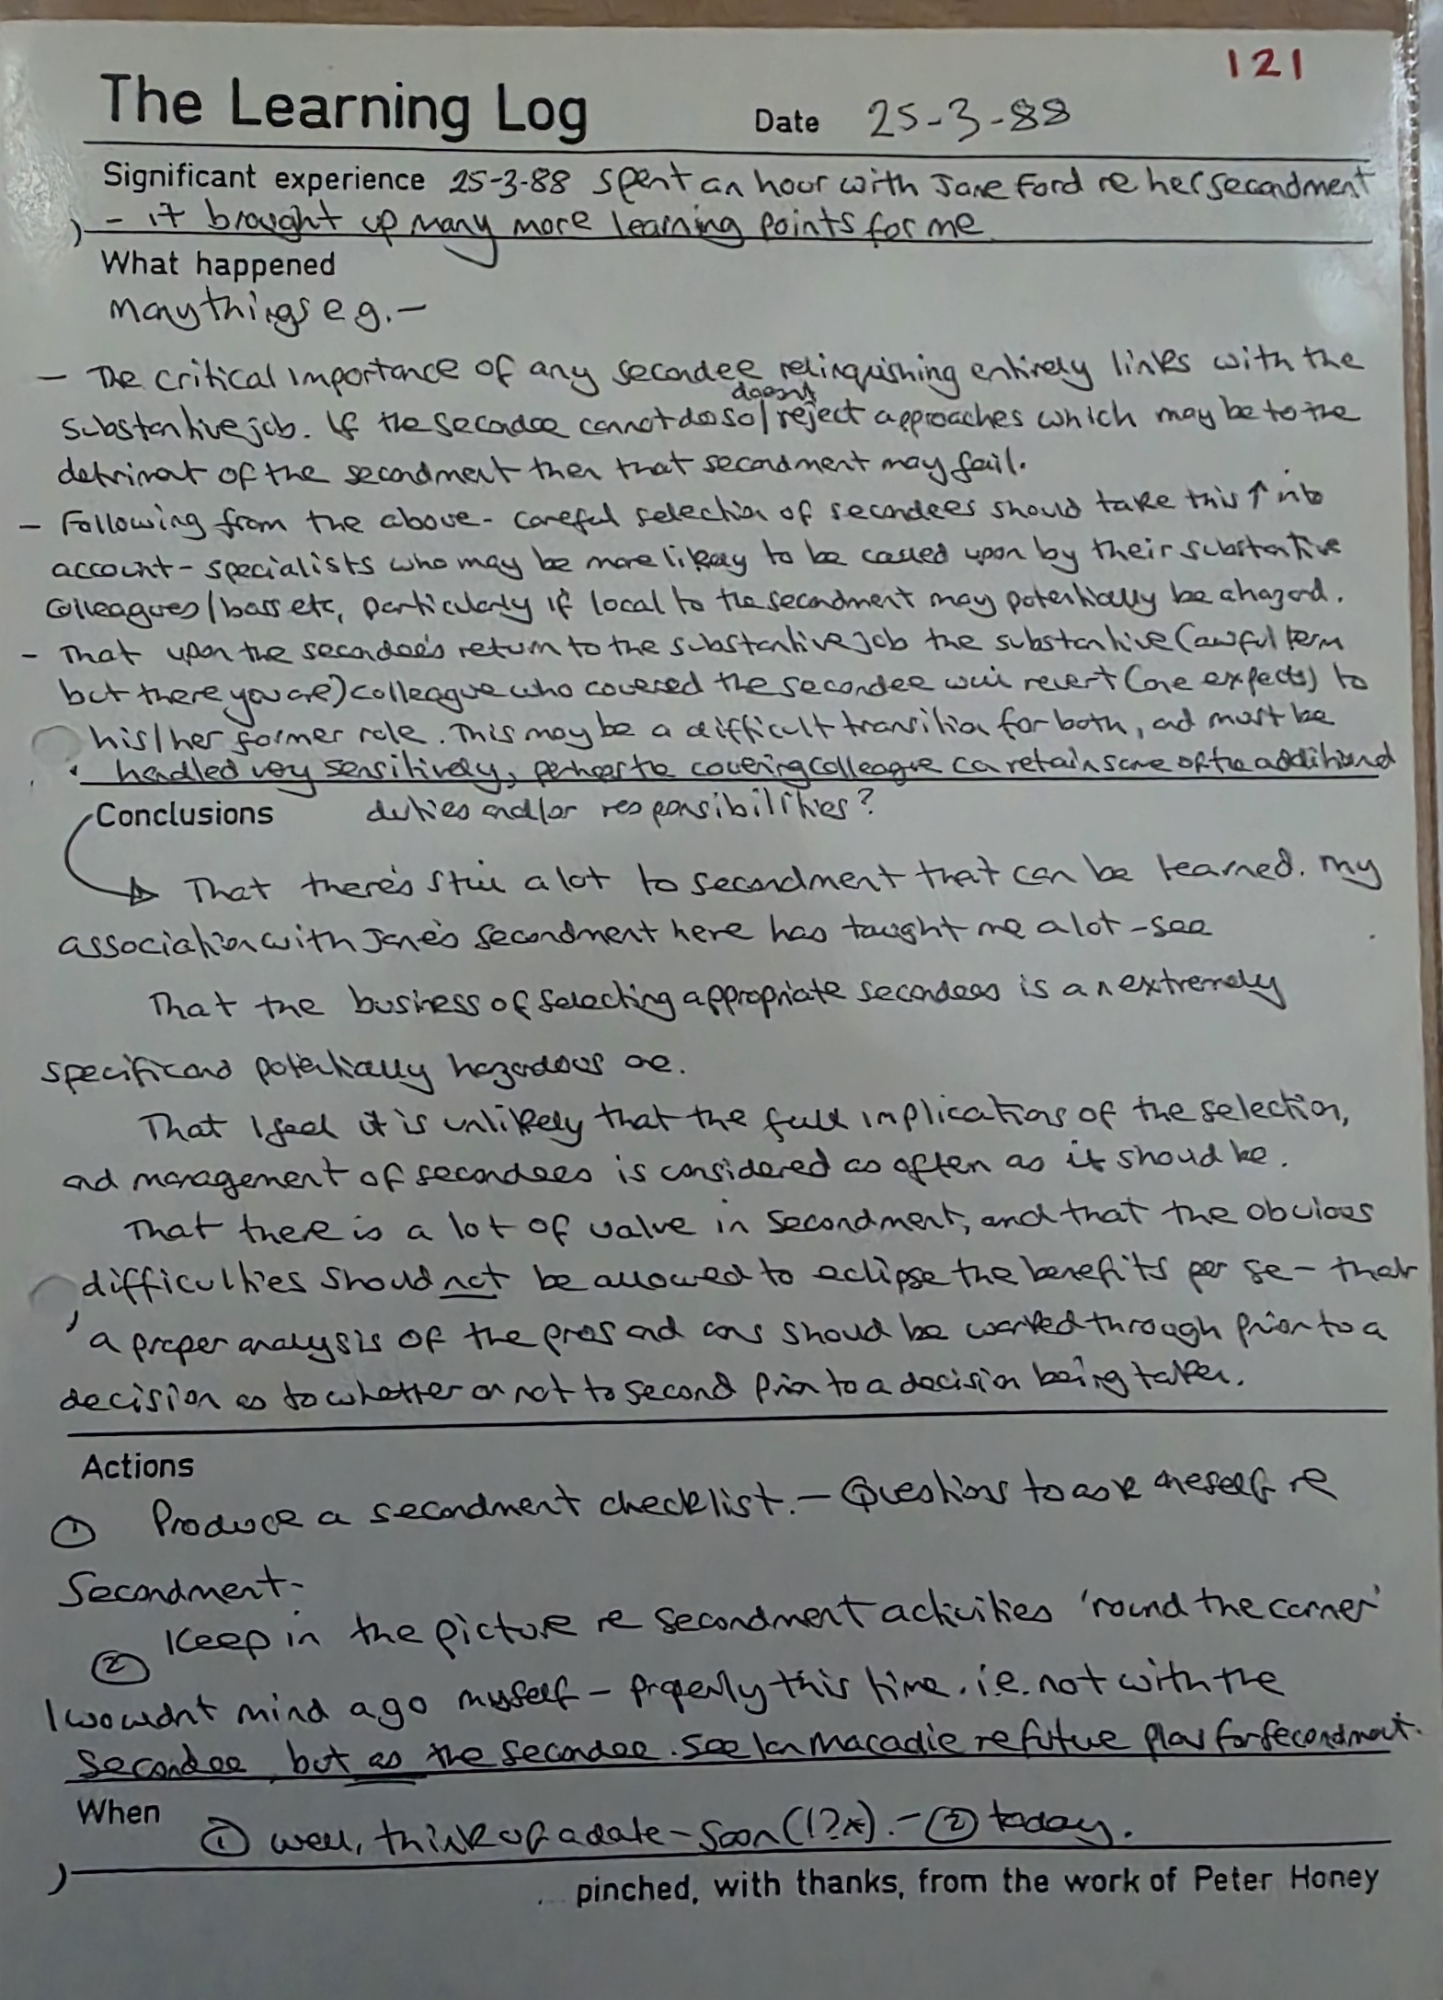 121
The Learning Log Date 25-3-88
Significant experience 25-3-88 spent an hour with Jane Ford re her secondment
- it brought up many more learning points for me
What happened
Many things e.g. -
- The critical importance of any secondee relinquishing entirely links with the
doesn't
substantive job. If the secondee cannot do so/ reject approaches which may be to the
detriment of the secondment then that secondment may fail.
- Following from the above - careful selection of secondees should take this ↑ into
account - specialists who may be more likely to be called upon by their substantive
colleagues/boss etc, particularly if local to the secondment may potentially be a hazard.
- That upon the secondee's return to the substantive job the substantive (awful term
but there you are) colleague who covered the secondee will revert (one expects) to
his/her former role. This may be a difficult transition for both, and must be
handled very sensitively, perhaps the covering colleague can retain some of the additional
Conclusions duties and/or responsibilities?
That there's still a lot to secondment that can be learned. My
association with Jane's secondment here has taught me a lot - see
That the business of selecting appropriate secondees is an extremely
specific and potentially hazardous one.
That I feel it is unlikely that the full implications of the selection,
and management of secondees is considered as often as it should be.
That there is a lot of value in secondment, and that the obvious
difficulties should not be allowed to eclipse the benefits per se - that
a proper analysis of the pros and cons should be worked through prior to a
decision as to whether or not to second prior to a decision being taken.
Actions
① Produce a secondment checklist. - Questions to ask oneself re
Secondment -
② Keep in the picture re secondment activities 'round the corner'
I wouldn't mind a go myself - properly this time. i.e. not with the
secondee but as the secondee. See Ian Macadie re future plans for secondment.
When ① well, think of a date - Soon (!?*). - ② today.
pinched, with thanks, from the work of Peter Honey